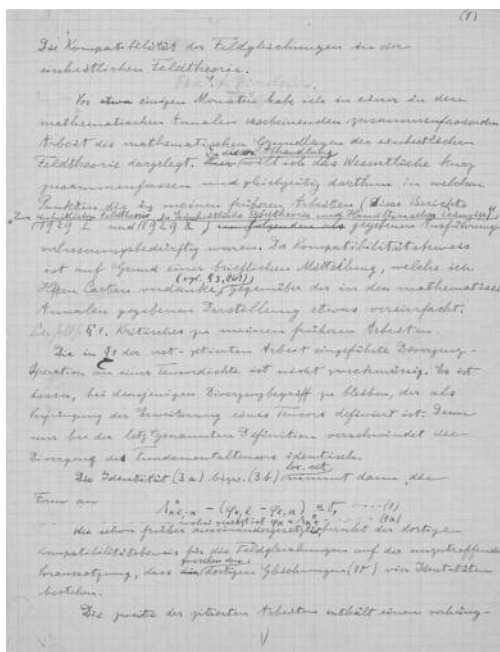 (1)
Die Kompatibilität der Feldgleichungen in der
einheitlichen Feldtheorie.
Vor etwa einigen Monaten habe ich in einer in den
mathematischen Annalen erscheinenden zusammenfassenden
Arbeit die mathematischen Grundlagen der einheitlichen
In dieser Abhandlung
Feldtheorie dargelegt. Hier will ich das Wesentliche kurz
zusammenfassen und gleichzeitig darthun in welchen
Punkten die in meinen früheren Arbeiten (diese Berichte
"Zur einheitlichen Feldtheorie" Einheitliche Feldtheorie und Hamiltonsches Prinzip"
1929 I und 1929 X) gegebenen Ausführungen
verbesserungsbedürftig waren. Der Kompatibilitätsbeweis
ist auf Grund einer brieflichen Mitteilung, welche ich
(vgl. §3, )
Herrn Cartan verdanke, gegenüber der in den mathematischen
Annalen gegebenen Darstellung etwas vereinfacht.
§ 1. Kritisches zu meinen früheren Arbeiten.
Die in §1 der erst-zitierten Arbeit eingeführte Divergenz-
Operation an einer Tensordichte ist nicht zweckmässig. Es ist
besser, bei demjenigen Divergenzbegriff zu bleiben, der als
Verjüngung der Erweiterung eines Tensors definiert ist. Denn
nur bei der letztgenannten Definition verschwindet die
Divergenz des Fundamentaltensors identisch.
loc. cit.
Die Identität (3a) bezw. (3b) nimmt dann die
Form an
(1)
(1a)
die schon früher
Kompatibilitätsbeweis für die Feldgleichungen auf die unzutreffende
zwischen den
Voraussetzung, dass dortigen Gleichungen (10) vier Identitäten
bestehen.
Die zweite der zitierten Arbeiten enthält einen verhäng-